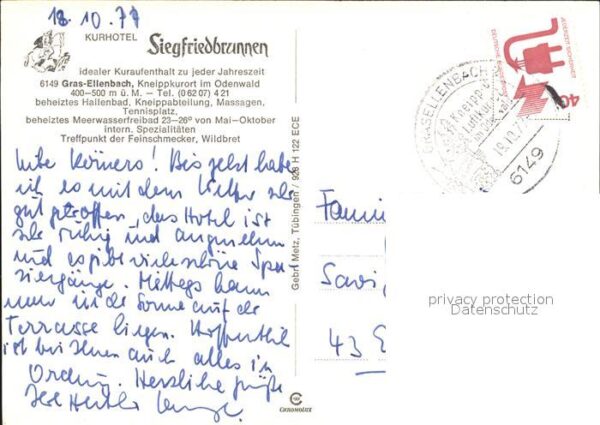 18.10.77
KURHOTEL
Siegfriedbrunnen
idealer Kuraufenthalt zu jeder Jahreszeit
6149 Gras-Ellenbach, Kneippkurort im Odenwald
400–500 m ü. M. – Tel. (0 62 07) 4 21
beheiztes Hallenbad, Kneippabteilung, Massagen,
Tennisplatz,
beheiztes Meerwasserfreibad 23–26° von Mai–Oktober
intern. Spezialitäten
Treffpunkt der Feinschmecker, Wildbret
Liebe Körners! Bis jetzt habe
ich es mit dem Wetter sehr
gut getroffen, das Hotel ist
sehr ruhig und angenehm
und es gibt viele schöne Spa
ziergänge. Mittags kann
man in der Sonne auf der
Terrasse liegen. Hoffentlich
ist bei Ihnen auch alles in
Ordnung. Herzliche Grüße
Ihre
Gebr. Metz, Tübingen / 926 H 122 ECE
CHROMOLUX
JEDERZEIT SICHERHEIT
DEUTSCHE BUNDESPOST
40
GRASELLENBACH
Kneipp
Luftkurort
18.10.77
6149
Fami
Savi
43 E
privacy protection
Datenschutz